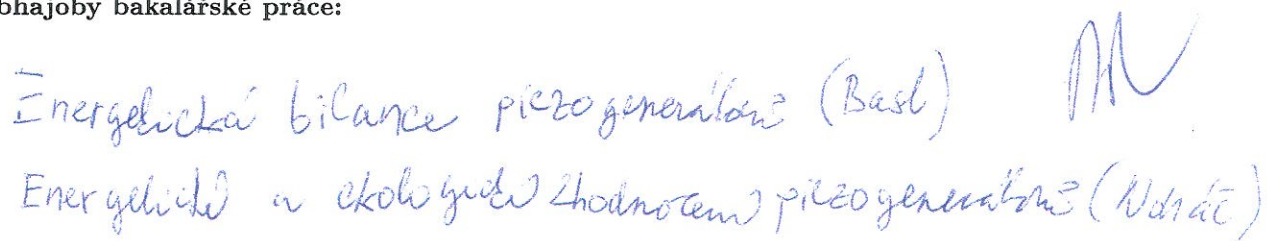 bhajoby bakalářské práce:
Energetická bilance piezogenerátorů (Basl)
Energetické a ekologické zhodnocení piezogenerátorů